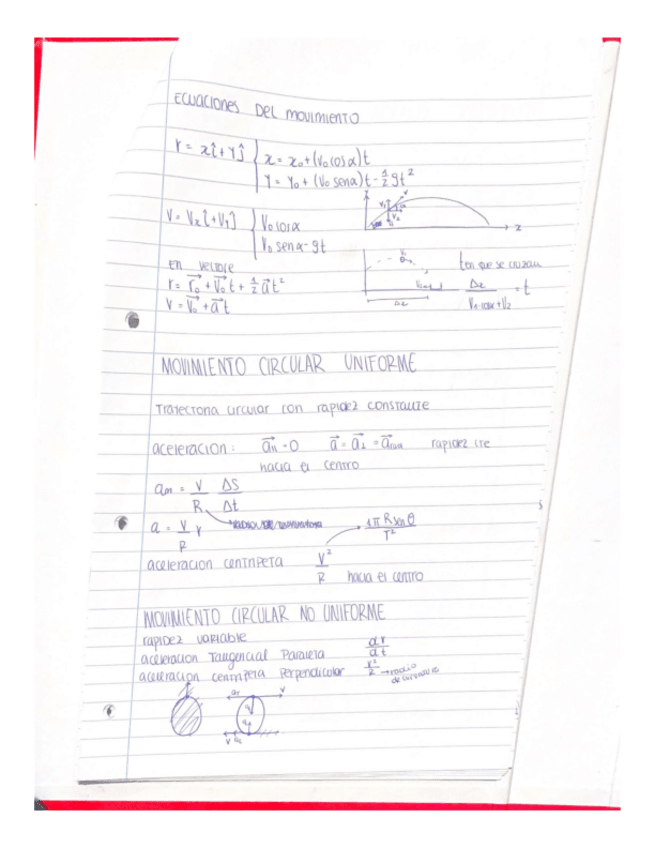 ECUACIONES DEL MOVIMIENTO
r = xî + yĵ { x = x₀ + (v₀ cos α)t
y = y₀ + (v₀ sen α)t - ½ gt²
V = Vxî + Vyĵ { V₀ cos α
V₀ sen α - gt
En
r = r₀ + v₀t + ½ at²
V = V₀ + at
t en que se cruzan
Δx / V₁·cosα + V₂ = t
Δx
MOVIMIENTO CIRCULAR UNIFORME
Trayectoria circular con rapidez constante
aceleracion: a₁₁ = 0 a = a⊥ = rapidez cte
hacia el centro
am = V/R ΔS/Δt
a = V/R V
4π R sen θ / T²
aceleracion centripeta V²/R hacia el centro
MOVIMIENTO CIRCULAR NO UNIFORME
rapidez variable
aceleracion Tangencial Paralela dv/dt
aceleracion centripeta Perpendicular V²/R → radio de curvatura